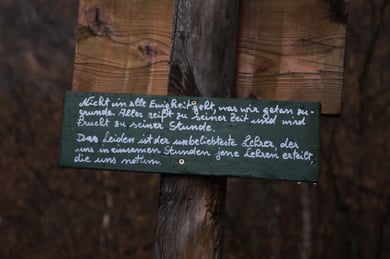 Nicht in alle Ewigkeit geht, was wir getan zu-
grunde. Alles reift zu seiner Zeit und wird
Frucht zu seiner Stunde.
Das Leiden ist der unbeliebteste Lehrer, der
uns in einsamen Stunden jene Lehren erteilt,
die uns